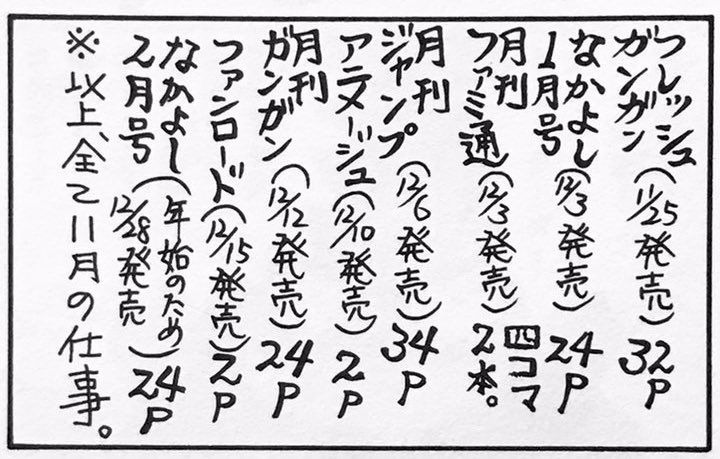 フレッシュ
ガンガン（11/25発売）32P
なかよし
1月号（12/3発売）24P
月刊
ファミ通（12/3発売）四コマ
2本。
月刊
ジャンプ（12/6発売）34P
アニメージュ（12/10発売）2P
月刊
ガンガン（12/12発売）24P
ファンロード（12/15発売）2P
なかよし
2月号（年始のため
12/28発売）24P
※以上、全て11月の仕事。